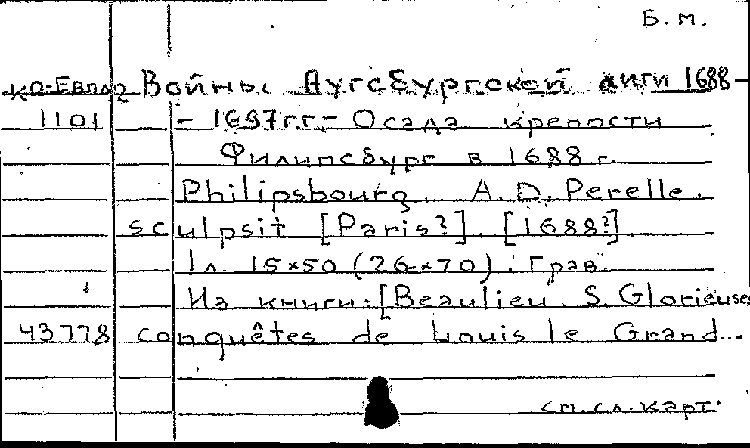 Б.м.
КО-Евпаз Войны Аугсбургской лиги 1688-
1101 - 1697г.г.- Осада крепости
Филипсбург в 1688 г.
Philipsbourg. A. D. Perelle.
sculpsit [Paris?]. [1688?].
1л. 15×50 (26×70). Грав.
Из книги: [Beaulieu S. Glorieuses
43778 conquêtes de Louis le Grand...
см. сл. карт.